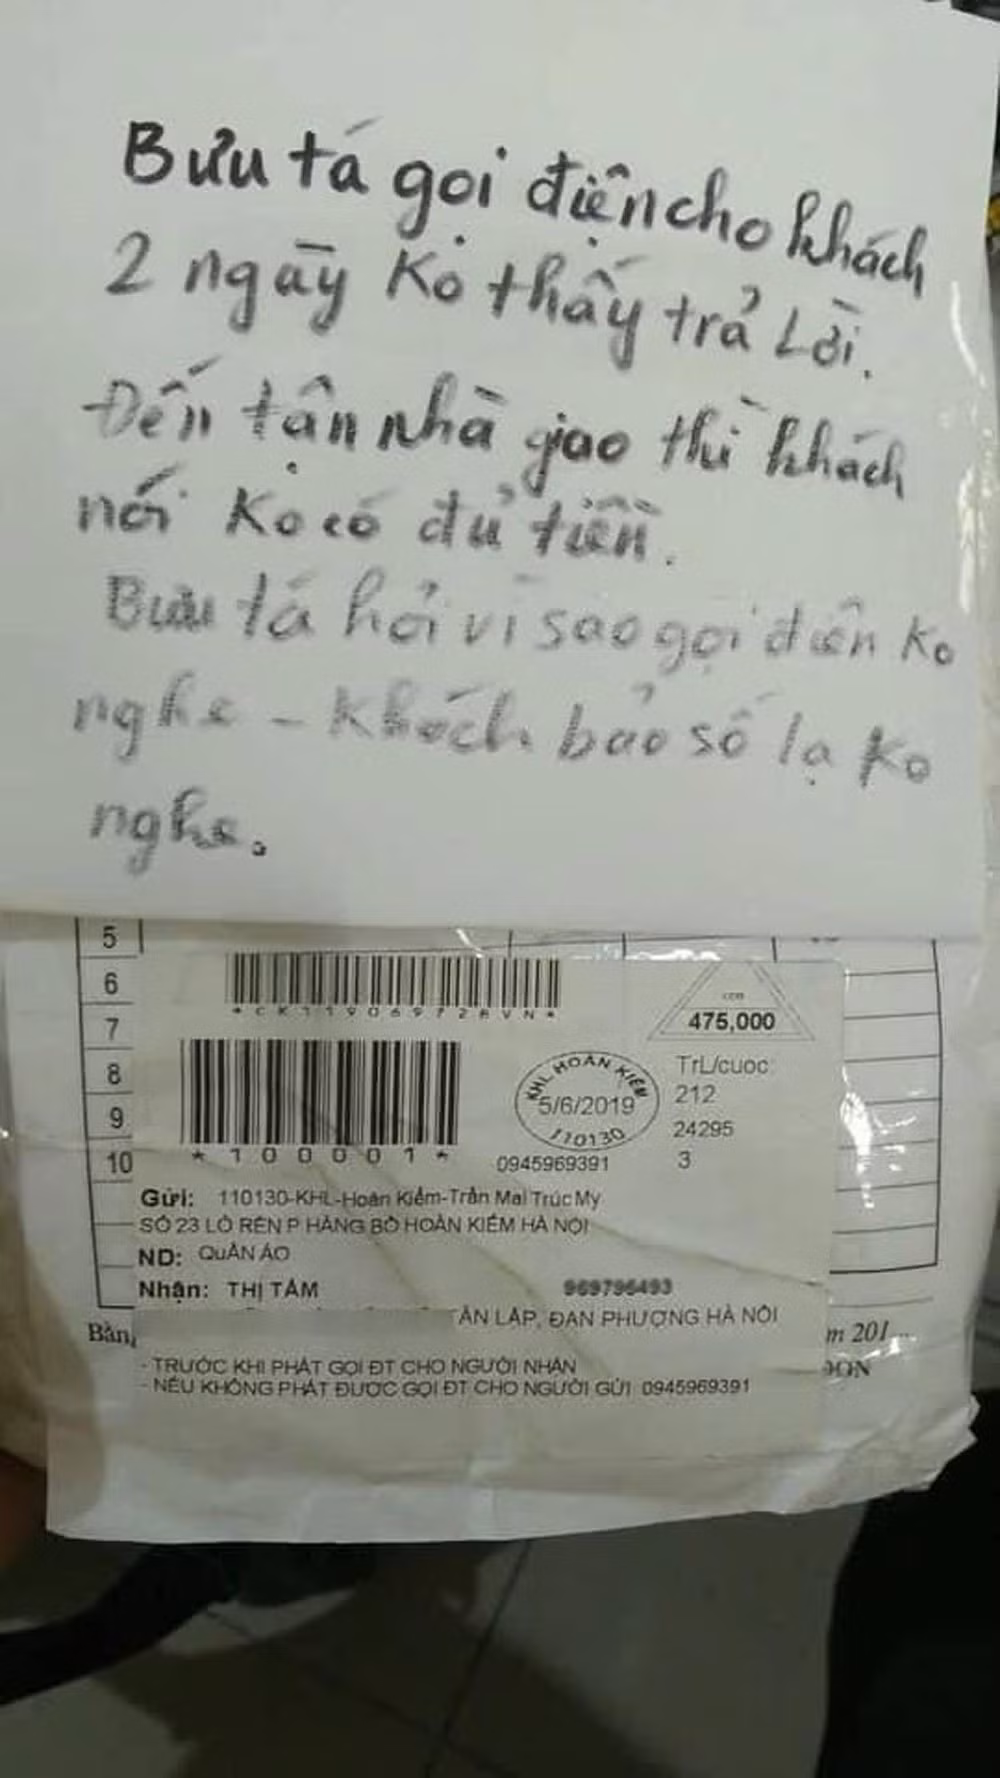 Bưu tá gọi điện cho khách
2 ngày Ko thấy trả Lời.
Đến tận nhà giao thì khách
nói Ko có đủ tiền.
Bưu tá hỏi vì sao gọi điện Ko
nghe - Khách bảo số lạ Ko
nghe.
5
6
7
8
9
10
*CK119069728VN*
COD
475,000
*100001*
KHL HOÀN KIẾM
5/6/2019
110130
TrL/cuoc:
212
24295
3
0945969391
Gửi: 110130-KHL-Hoàn Kiếm-Trần Mai Trúc My
SỐ 23 LÒ RÈN P HÀNG BỒ HOÀN KIẾM HÀ NỘI
ND: QuẦN ÁO
Nhận: THỊ TÂM 969796493
ÂN LẬP, ĐAN PHƯỢNG HÀ NỘI
Bằn m 201...
- TRƯỚC KHI PHÁT GỌI ĐT CHO NGƯỜI NHẬN
- NẾU KHÔNG PHÁT ĐƯỢC GỌI ĐT CHO NGƯỜI GỬI 0945969391